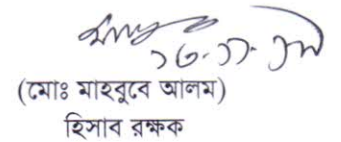 ১৬-১১-১৮
(মোঃ মাহবুবে আলম)
হিসাব রক্ষক